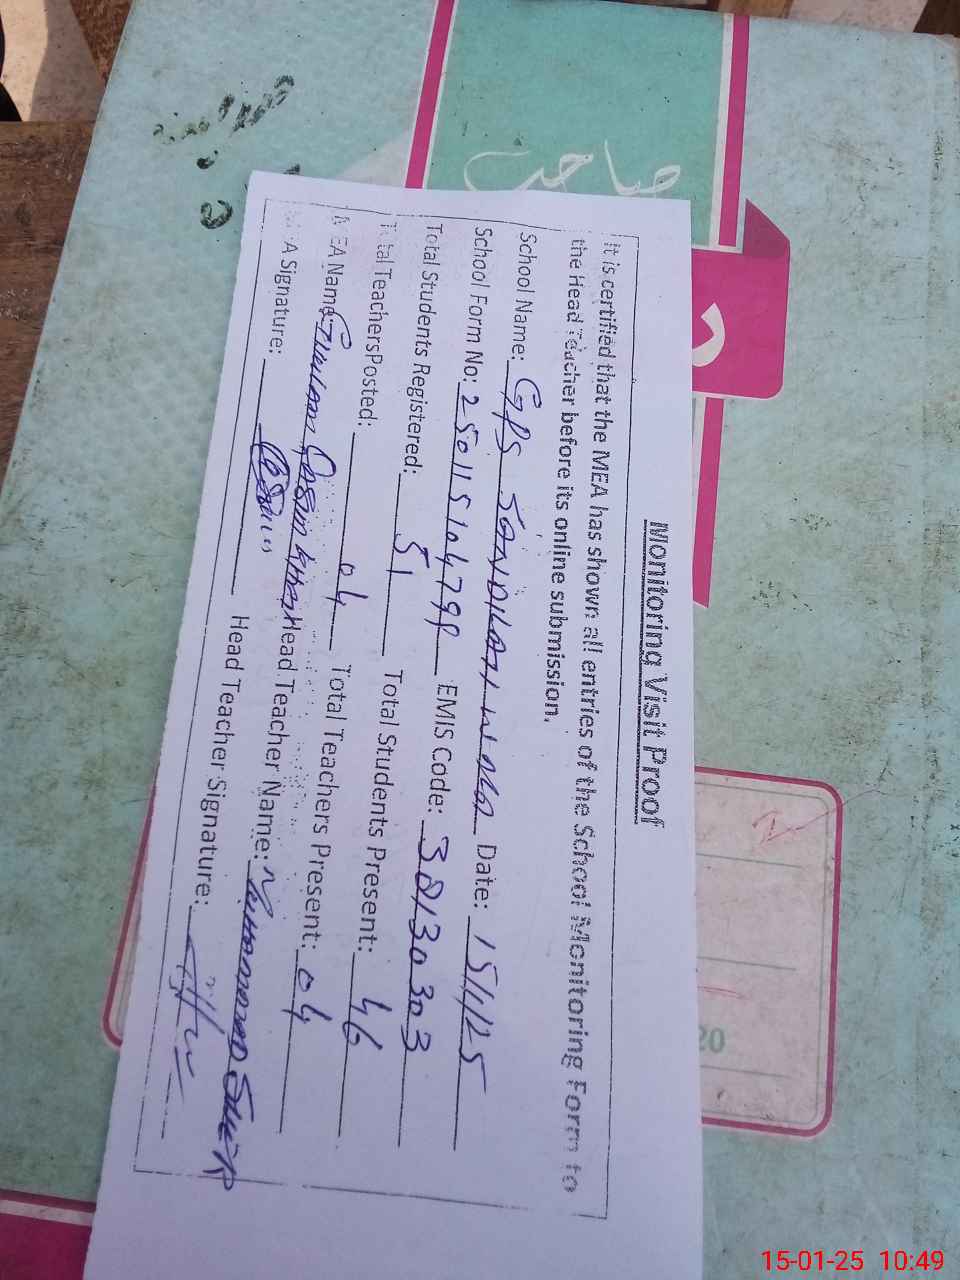 صاحب
Monitoring Visit Proof
It is certified that the MEA has shown all entries of the School Monitoring Form to
the Head Teacher before its online submission.
School Name: GPS Date: 15/1/25
School Form No: EMIS Code: 38130303
Total Students Registered: 51 Total Students Present: 46
Total Teachers Posted: 04 Total Teachers Present: 04
MEA Name: Head Teacher Name:
MEA Signature: Head Teacher Signature:
20
15-01-25 10:49